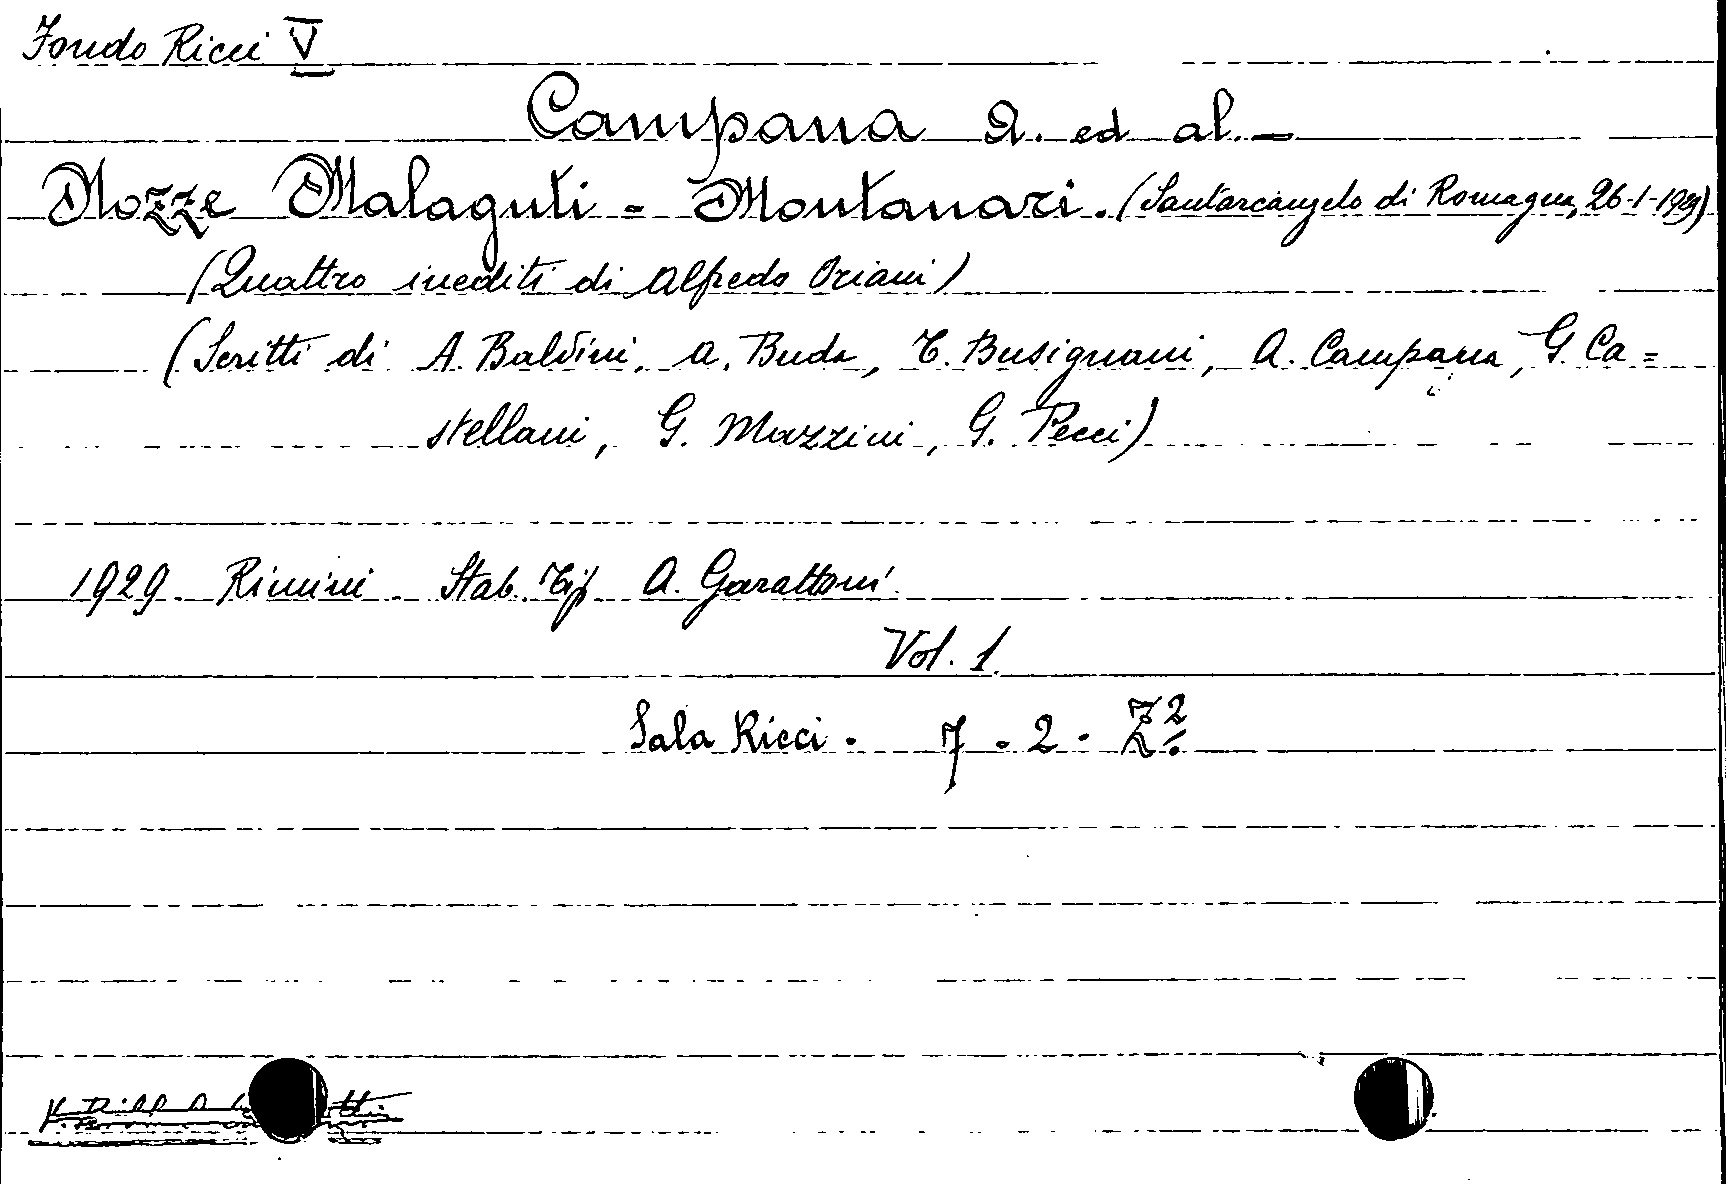 Fondo Ricci V
Campana A. ed al. -
Nozze Malaguti - Montanari. (Santarcangelo di Romagna, 26-1-1929)
(Quattro inediti di Alfredo Oriani)
(Scritti di A. Baldini, A. Buda, T. Busignani, A. Campana, G. Ca=
stellani, G. Mazzini, G. Pecci)
1929. Rimini. Stab. Tip. A. Garattoni
Vol. 1.
Sala Ricci. 7 - 2 -